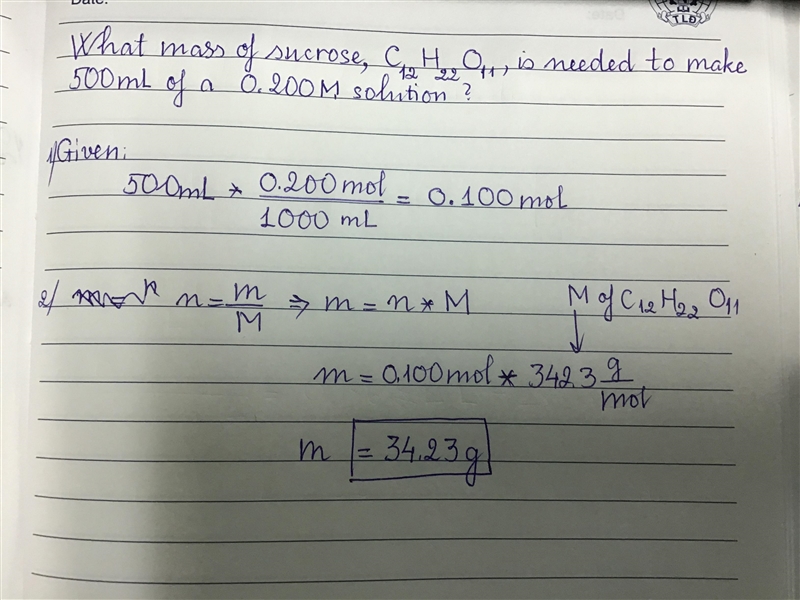 Date:
TLĐ
What mass of sucrose, C₁₂H₂₂O₁₁, is needed to make
500mL of a 0.200M solution?
1/Given:
500mL * 0.200mol/1000 mL = 0.100mol
2/ n = m/M ⇒ m = n * M M of C₁₂H₂₂O₁₁
↓
m = 0.100mol * 342.3 g/mol
m = 34.23g